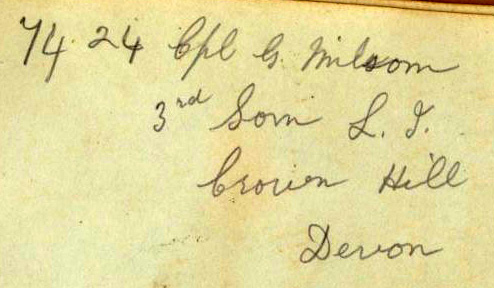 7424 Cpl G. Milsom
3rd Som L. I.
Crown Hill
Devon